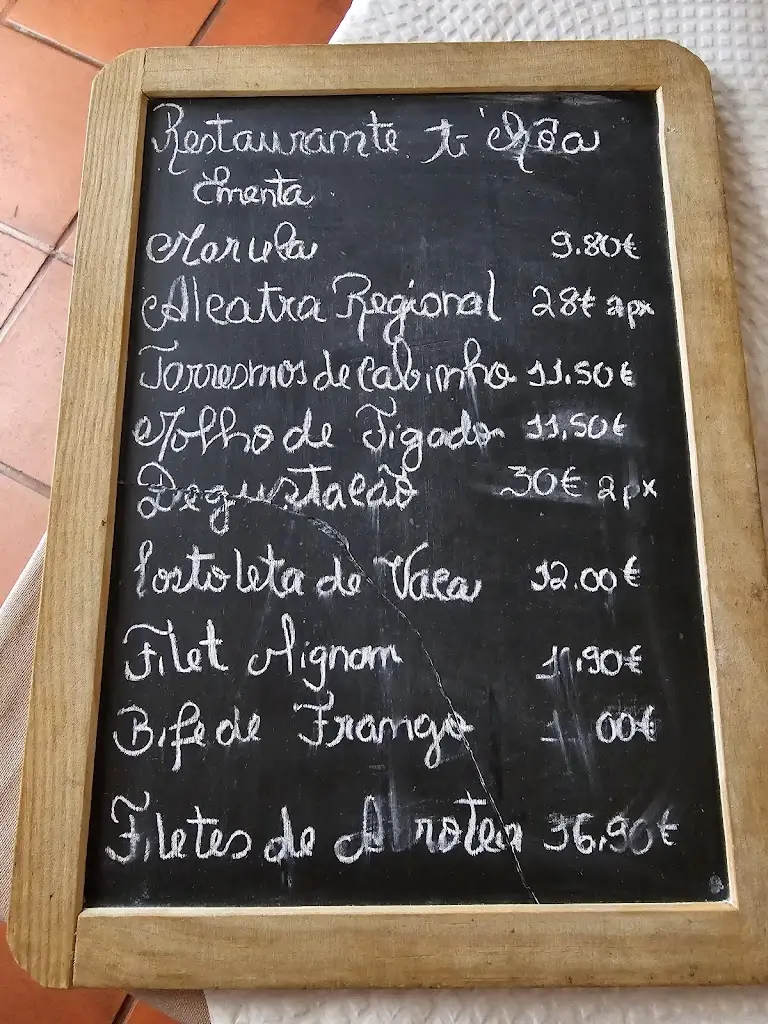 Restaurante ti Chôa
Ementa
Morcela 9.80€
Alcatra Regional 28€ 2px
Torresmos de Cabinho 11.50€
Molho de Figado 11,50€
Degustacão 30€ 2px
Costoleta de Vaca 12.00€
Filet Mignom 11,90€
Bife de Frango 00€
Filetes de Abrotea 16,90€